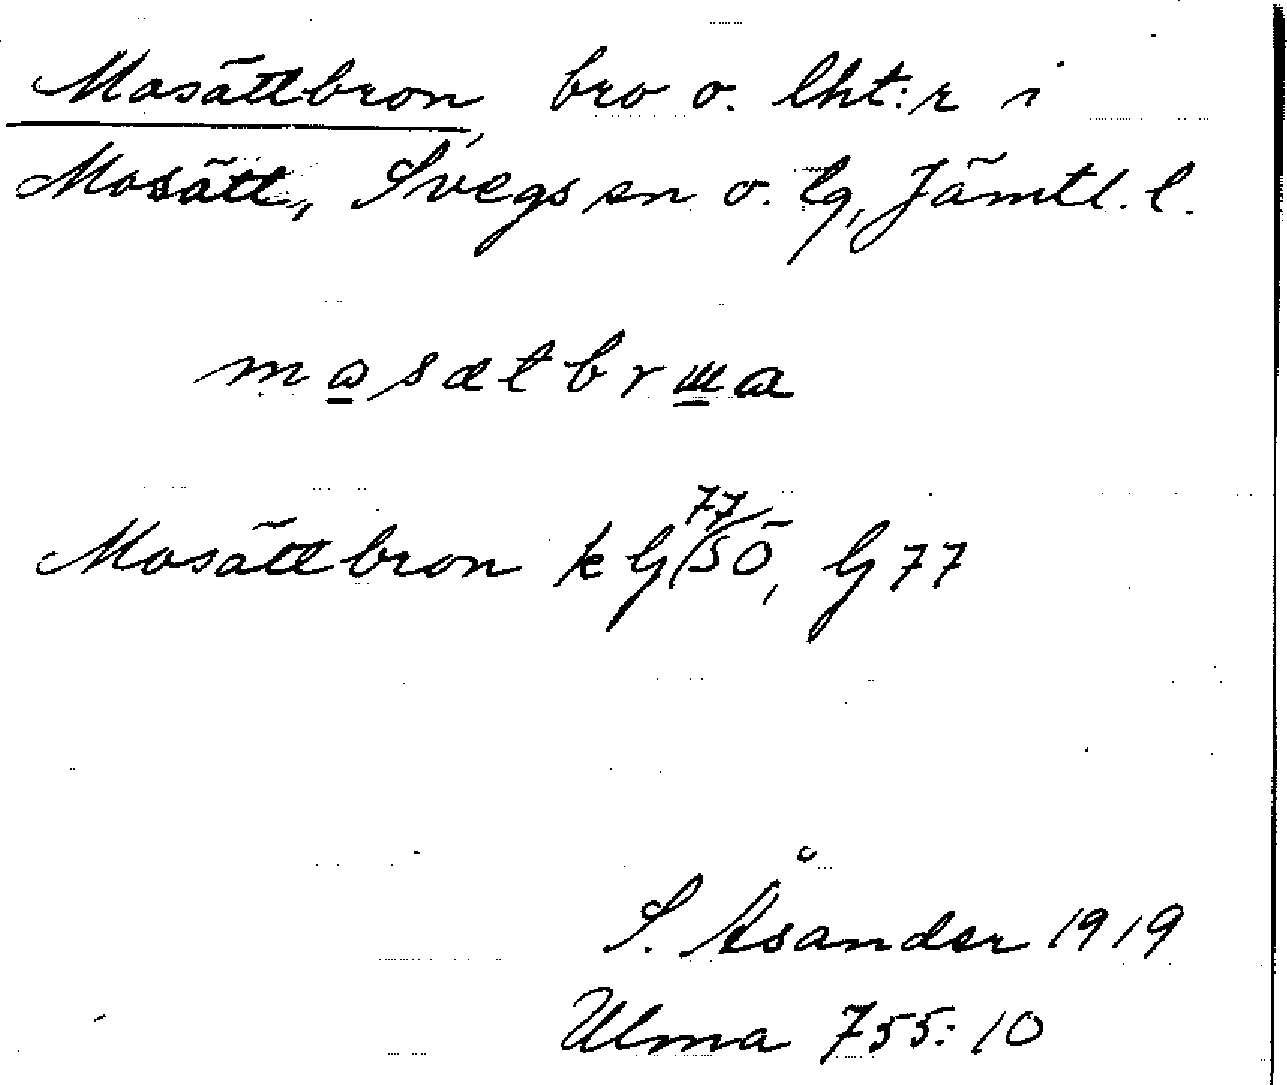 Mosättbron, bro o. lht:r i
Mosätt, Svegs sn o. lg, Jämtl. l.
Mosättbron k G 77/SÖ, G 77
S. Åsander 1919
Ulma 755:10